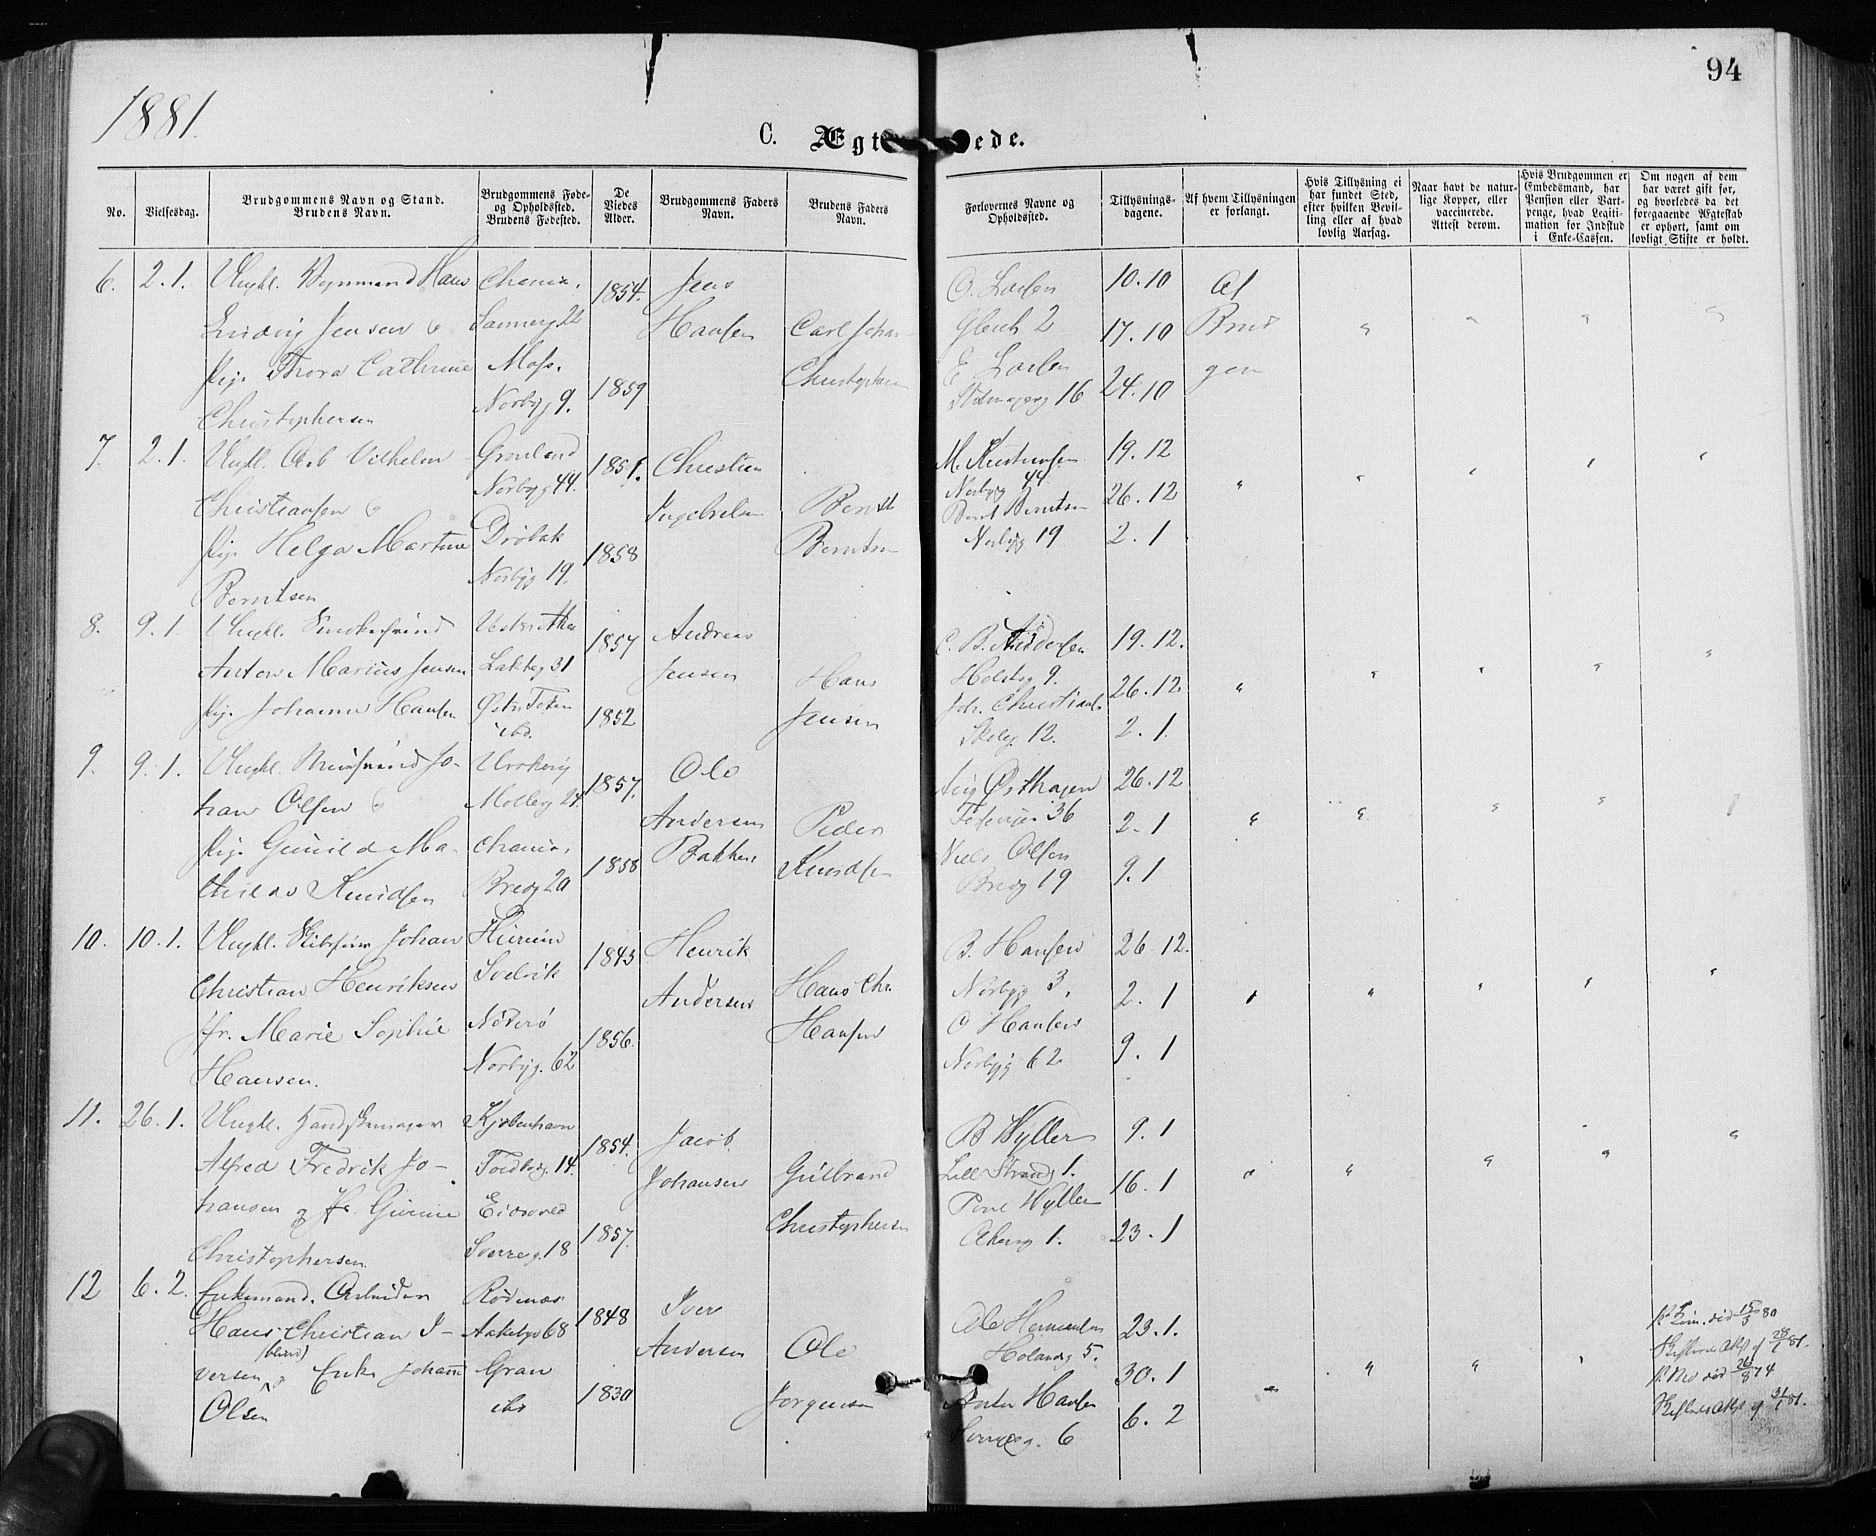 94
1881.
C. Ægt ede.
No.
Vielsesdag.
Brudgommens Navn og Stand.
Brudens Navn.
Brudgommens Føde-
og Opholdssted.
Brudens Fødested.
De
Viedes
Alder.
Brudgommens Faders
Navn.
Brudens Faders
Navn.
Forlovernes Navne og
Opholdssted.
Tillysnings-
dagene.
Af hvem Tillysningen
er forlangt.
Hvis Tillysning ei
har fundet Sted,
efter hvilken Bevil-
ling eller af hvad
lovlig Aarsag.
Naar havt de natur-
lige Kopper, eller
vaccinerede.
Attest derom.
Hvis Brudgommen er
Embedsmand, har
Pension eller Vart-
penge, hvad Legiti-
mation for Indskud
i Enke-Cassen.
Om nogen af dem
har været gift før,
og hvorledes da det
foregaaende Ægteskab
er ophørt, samt om
lovligt Skifte er holdt.
6. 2.1. Ungkl. Hans
Ludvig Jensen
Pige Thora Cathrine
Christophersen
Chania.
22
Moss.
Norbyg 9.
1854.
1859
Jens
Hansen
Carl Johan
Christophersen
10.10
Gl
2
17.10
E.
16
24.10
Af
Brud
gom
7. 2.1. Ungkl. Arb Vilhelm
Christiansen
Pige Helga Martine
Berntsen
Grønland
Norbyg 44.
Drøbak
Norbyg 19.
1851.
1858
Christian
Ingebretsen
Bernt
Berntsen
19.12
Norbyg 44
Bernt Berntsen
26.12
Norbyg 19
2.1
8. 9.1. Ungkl.
Anton Marius Jensen
Pige Johanne Hansen
Vestre Aker
Lakkeg 31
Østre Toten
ibd.
1857
1852
Andreas
Jensen
Hans
Jensen
C. B.
19.12.
9.
26.12
Joh. Christians
12.
2.1.
9. 9.1. Ungkl. Jo-
han Olsen
Pige Gunild Ma-
thilde Knudsen
Urskoug
Mølleg 24.
Chania.
Bredg 20
1857.
1858
Ole
Andersen
Bakken
Peder
Knudsen
Aug Østhagen
26.12
36
2.1
Niels Olsen
Bredg 19
9.1
10. 10.1. Ungkl. Johan
Christian Henriksen
Jfr. Marie Sophie
Hansen.
Hurum
Svelvik
Nøterø
Norbyg. 62
1843
1856.
Henrik
Andersen
Hans Chr.
Hansen
B. Hansen
26.12.
Norbyg 3.
2.1
O Hansen
Norbyg 62
9.1
11. 26.1. Ungkl. Handskemager
Alfred Fredrik Jo-
hansen og Jfr. Gurine
Christophersen
Kjøbenhavn
Toldbg. 14.
Eidsvold
Sverreg. 18
1854.
1857.
Jacob
Johansen
Gulbrand
Christophersen
B Wyller
9.1
Lill Strandg 1.
16.1
Poul Wyller
Akersg 1.
23.1
12 6.2. Enkemand. Arbeider
Hans Christian I-
(blind)
versen og Enke Johanne
Olsen
Rødenæs
Aakebgv 68
Gran
ibd
1848
1830
Iver
Andersen
Ole
Jørgensen
Ole Hermansen
23.1.
Holandg 5.
30.1
Anton Hansen
Sverreg. 6
6.2
død 15/3 80
28/1 81.
død 26/8 74
31/1 81.